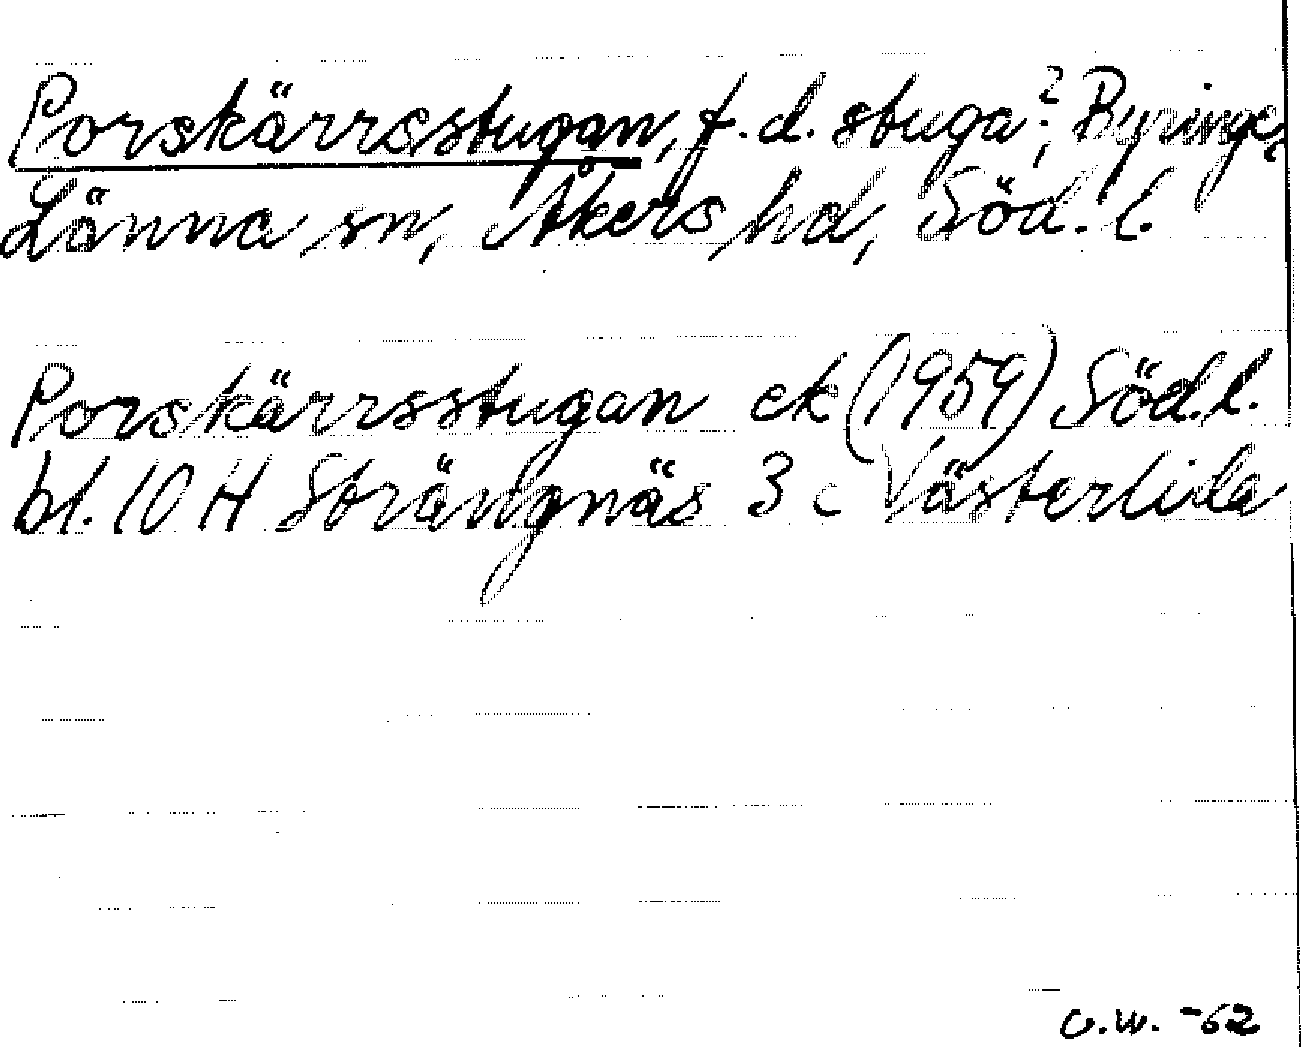 Porskärrsstugan, f.d. stuga?, Byringe,
Länna sn, Åkers hd, Söd. l.
Porskärrsstugan ek (1959) Söd.l.
bl. 10 H Strängnäs 3 c Västerlida
C.W. -62